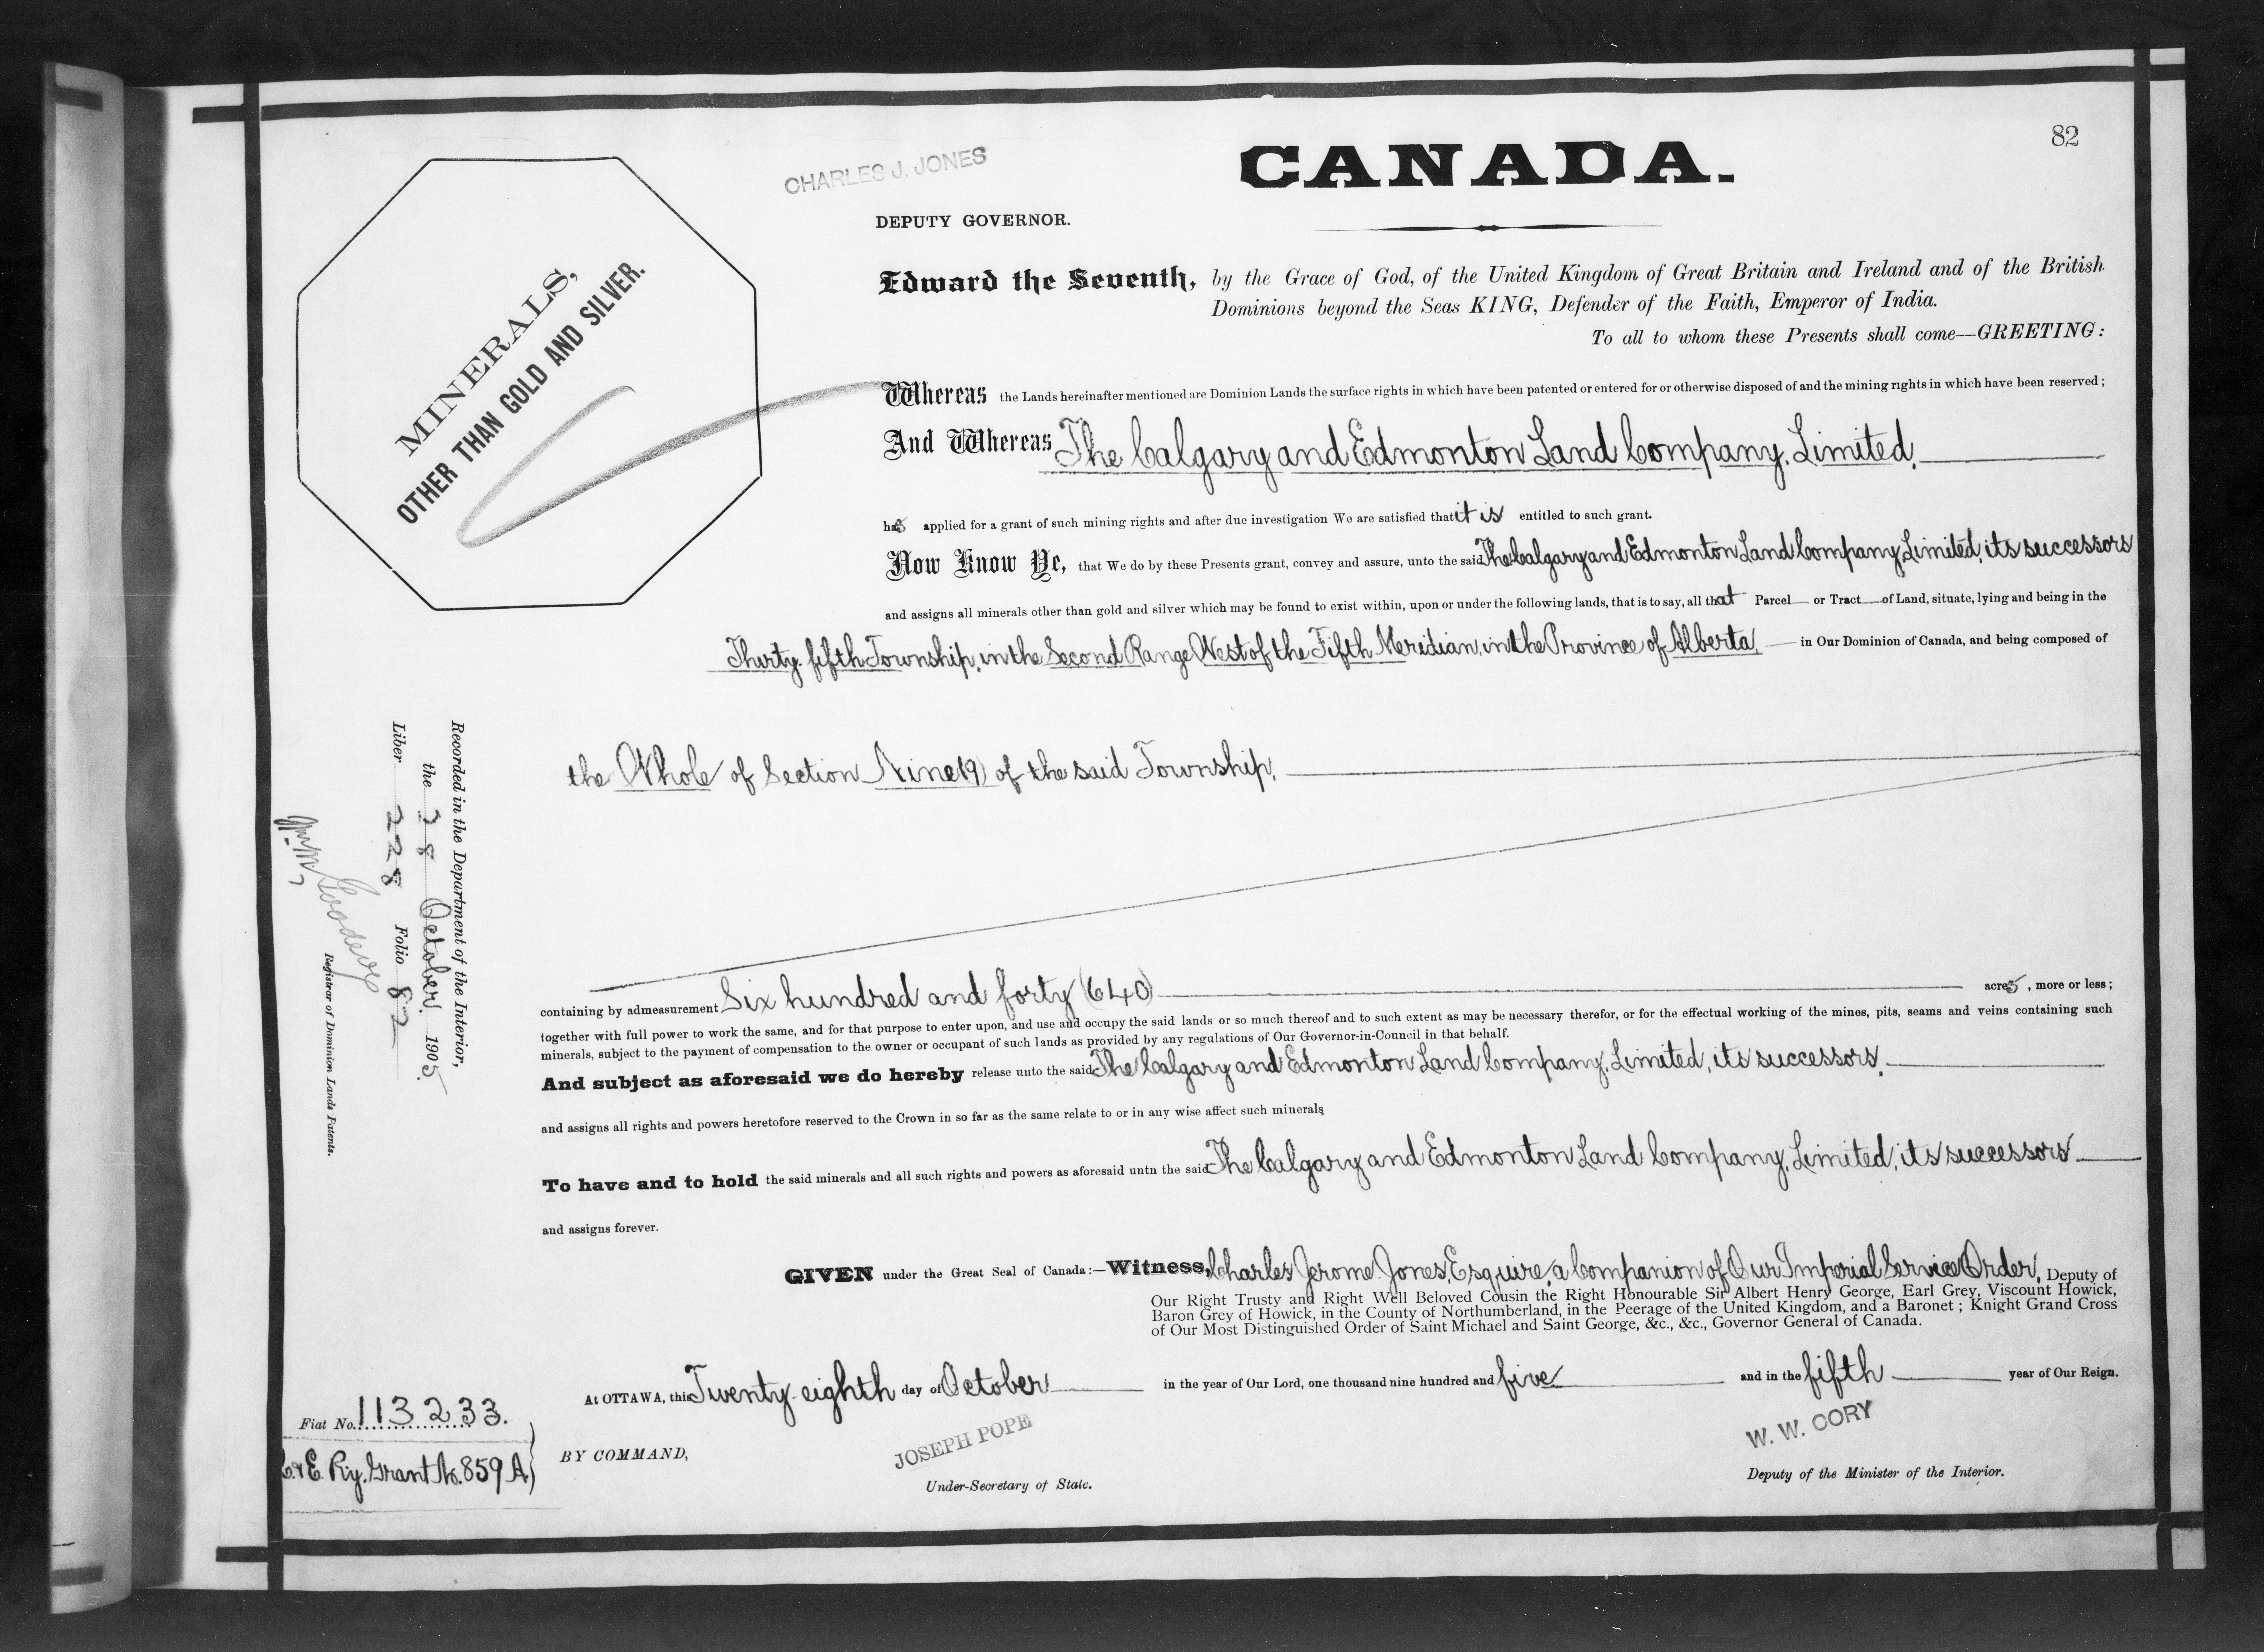 82
CHARLES J. JONES
CANADA.
DEPUTY GOVERNOR.
MINERALS,
OTHER THAN GOLD AND SILVER.
Edward the Seventh, by the Grace of God, of the United Kingdom of Great Britain and Ireland and of the British
Dominions beyond the Seas KING, Defender of the Faith, Emperor of India.
To all to whom these Presents shall come—GREETING:
Whereas the Lands hereinafter mentioned are Dominion Lands the surface rights in which have been patented or entered for or otherwise disposed of and the mining rights in which have been reserved;
And Whereas The Calgary and Edmonton Land Company, Limited,
has applied for a grant of such mining rights and after due investigation We are satisfied that it is entitled to such grant.
Now Know Ye, that We do by these Presents grant, convey and assure, unto the said The Calgary and Edmonton Land Company, Limited, its successors
and assigns all minerals other than gold and silver which may be found to exist within, upon or under the following lands, that is to say, all that Parcel or Tract of Land, situate, lying and being in the
Thirty-fifth Township, in the Second Range West of the Fifth Meridian, in the Province of Alberta, in Our Dominion of Canada, and being composed of
the Whole of Section Nine (9) of the said Township,
containing by admeasurement Six hundred and forty (640) acres, more or less;
together with full power to work the same, and for that purpose to enter upon, and use and occupy the said lands or so much thereof and to such extent as may be necessary therefor, or for the effectual working of the mines, pits, seams and veins containing such
minerals, subject to the payment of compensation to the owner or occupant of such lands as provided by any regulations of Our Governor-in-Council in that behalf.
And subject as aforesaid we do hereby release unto the said The Calgary and Edmonton Land Company, Limited, its successors,
and assigns all rights and powers heretofore reserved to the Crown in so far as the same relate to or in any wise affect such minerals
To have and to hold the said minerals and all such rights and powers as aforesaid untn the said The Calgary and Edmonton Land Company, Limited, its successors
and assigns forever.
GIVEN under the Great Seal of Canada:—Witness, Charles Jerome Jones, Esquire, a Companion of Our Imperial Service Order, Deputy of
Our Right Trusty and Right Well Beloved Cousin the Right Honourable Sir Albert Henry George, Earl Grey, Viscount Howick,
Baron Grey of Howick, in the County of Northumberland, in the Peerage of the United Kingdom, and a Baronet; Knight Grand Cross
of Our Most Distinguished Order of Saint Michael and Saint George, &c., &c., Governor General of Canada.
At OTTAWA, this Twenty-eighth day of October in the year of Our Lord, one thousand nine hundred and five and in the fifth year of Our Reign.
BY COMMAND,
JOSEPH POPE
Under-Secretary of State.
W. W. CORY
Deputy of the Minister of the Interior.
Recorded in the Department of the Interior,
the 28 October 1905.
Liber 228 Folio 82
Wm. M. Goodeve
Registrar of Dominion Lands Patents.
Fiat No. 113233.
C. & E. Ry. Grant No. 859 A